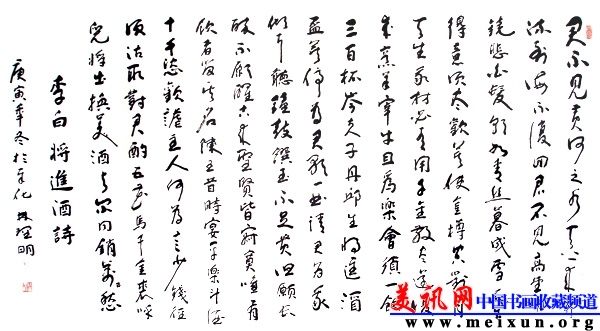 君不見黃河之水天上來奔
流到海不復回君不見高堂明
鏡悲白髮朝如青絲暮成雪人生
得意須盡歡莫使金樽空對月
天生我材必有用千金散盡還復
來烹羊宰牛且爲樂會須一飲
三百杯岑夫子丹邱生將進酒
盃莫停爲君歌一曲請君爲我
傾耳聽鐘鼓饌玉不足貴但願長
醉不願醒古來聖賢皆寂寞唯有
飲者留其名陳王昔時宴平樂斗酒
十千恣歡謔主人何爲言少錢徑
須沽取對君酌五花馬千金裘呼
兒將出換美酒與爾同銷萬古愁
李白將進酒詩
庚寅年冬於 化 明
美讯网 中国书画收藏频道
www.meixun.org